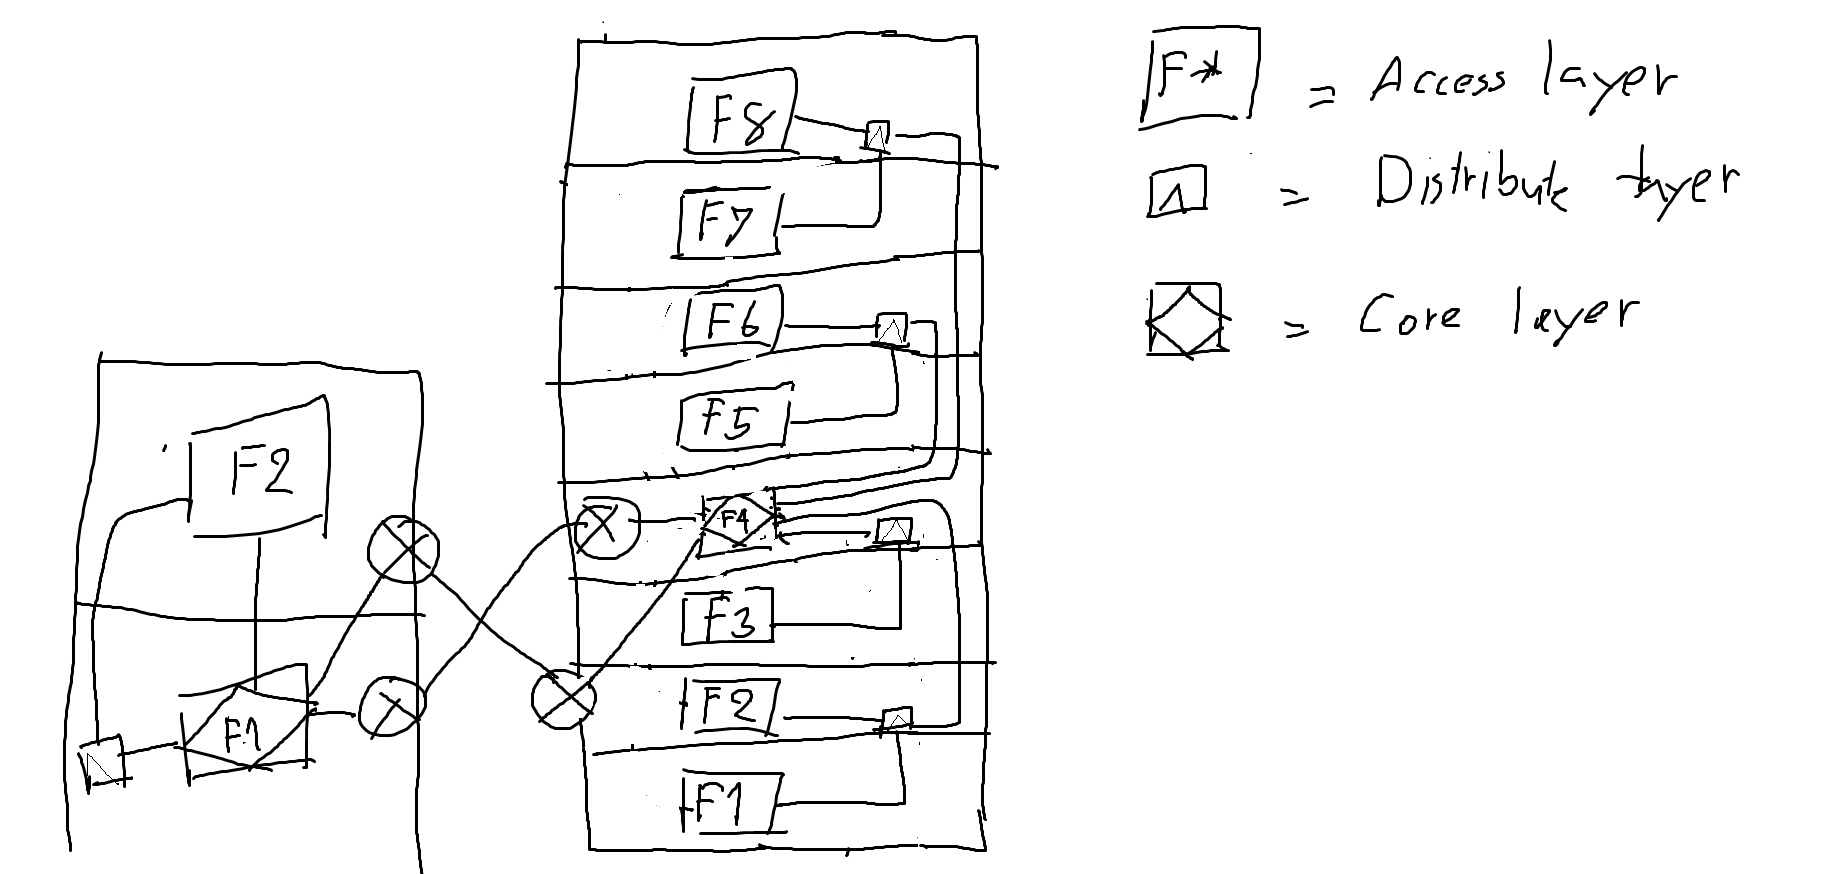 F8
F7
F6
F5
F4
F3
F2
F1
F2
F1
F* = Access layer
= Distribute layer
= Core layer